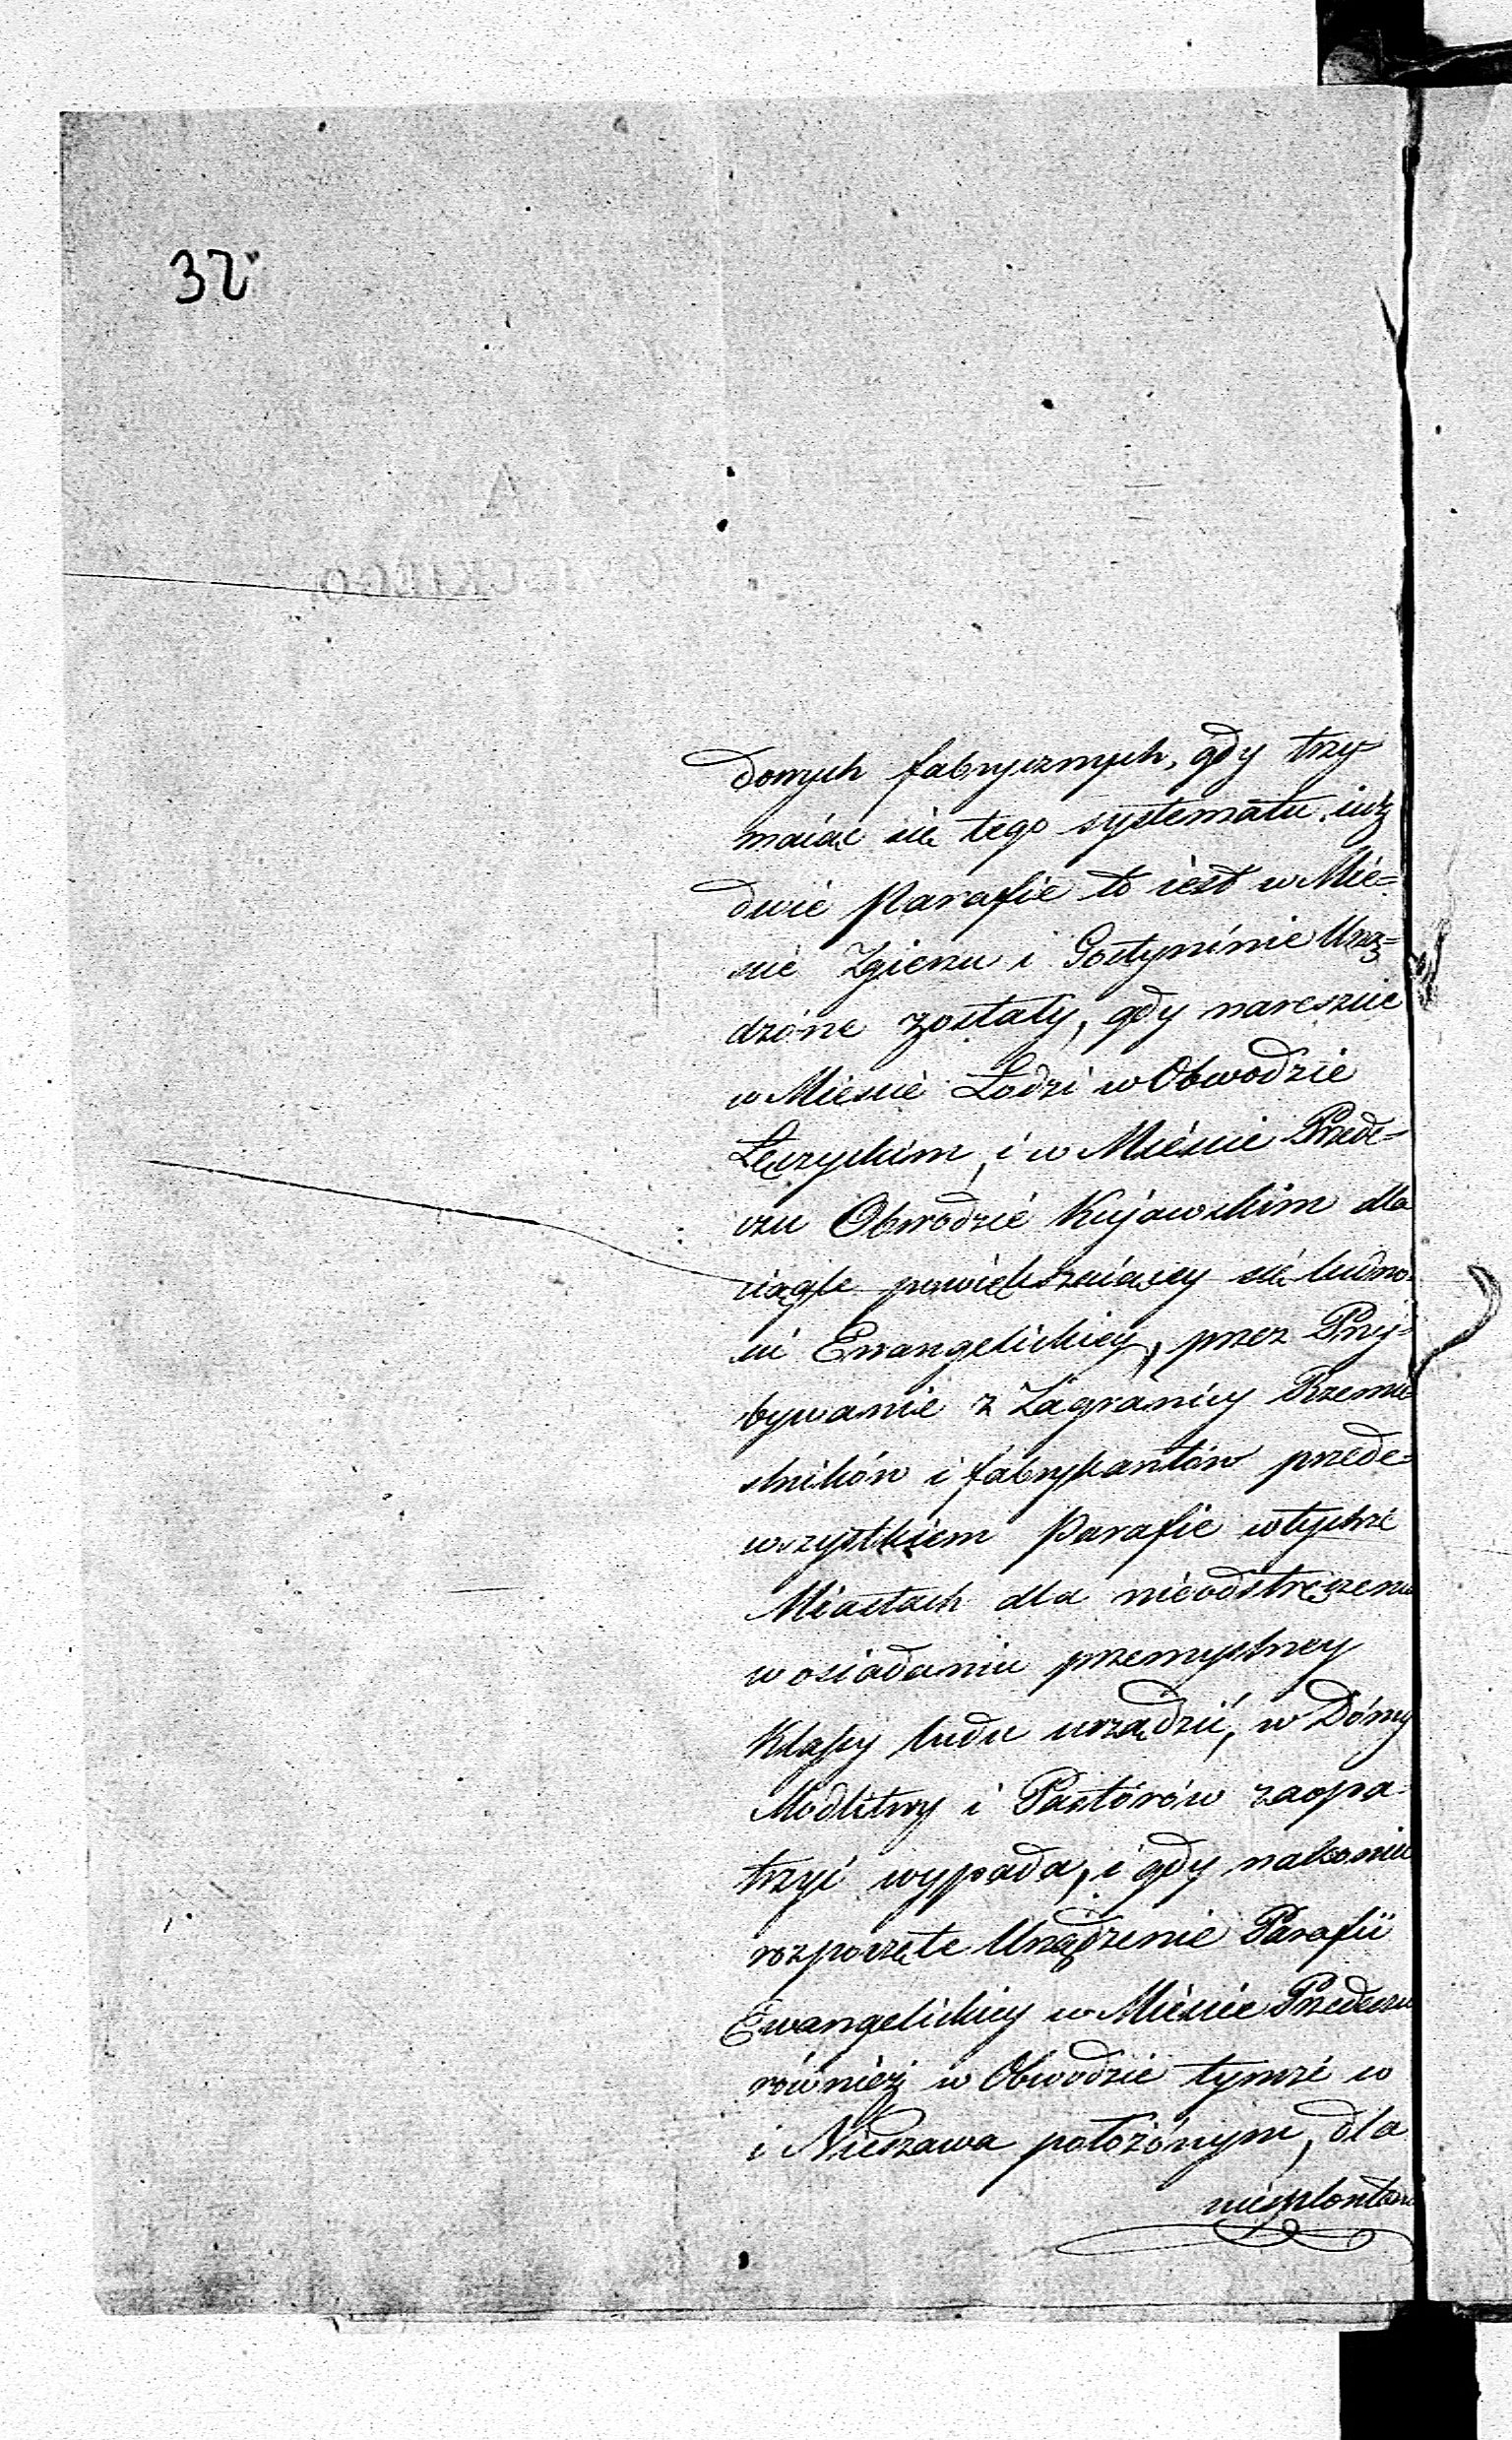 32
domych fabrycznych, gdy trzy=
maiąc się tego systematu, iuż
dwie Parafie to iest w Mie=
ście Zgierzu i Gostyninie Urzą=
dzóne zostały, gdy nareszcie
w Mieście Łodzi w Obwodzie
Łęczyckim, i w Mieście Przede=
czu Obwodzie Kujawskim dla
ciągle powiększaiącey się ludno=
ści Ewangelickiey, przez Przy=
bywanie z Zagranicy Rzemie
slników i fabrykantów przede=
wszystkiem Parafie w tychże
Miastach dla nieodstręczenia
w osiadaniu przemysłney
Klassy ludu urządzić, w Dómy
Modlitwy i Pastórów zaopa=
trzyć wypada, i gdy nakoniec
rozpoczęte Urządzenie Parafii
Ewangelickiey w Mieście Przedeczu
również w Obwodzie tymże w
i Nieszawa położónym, dla